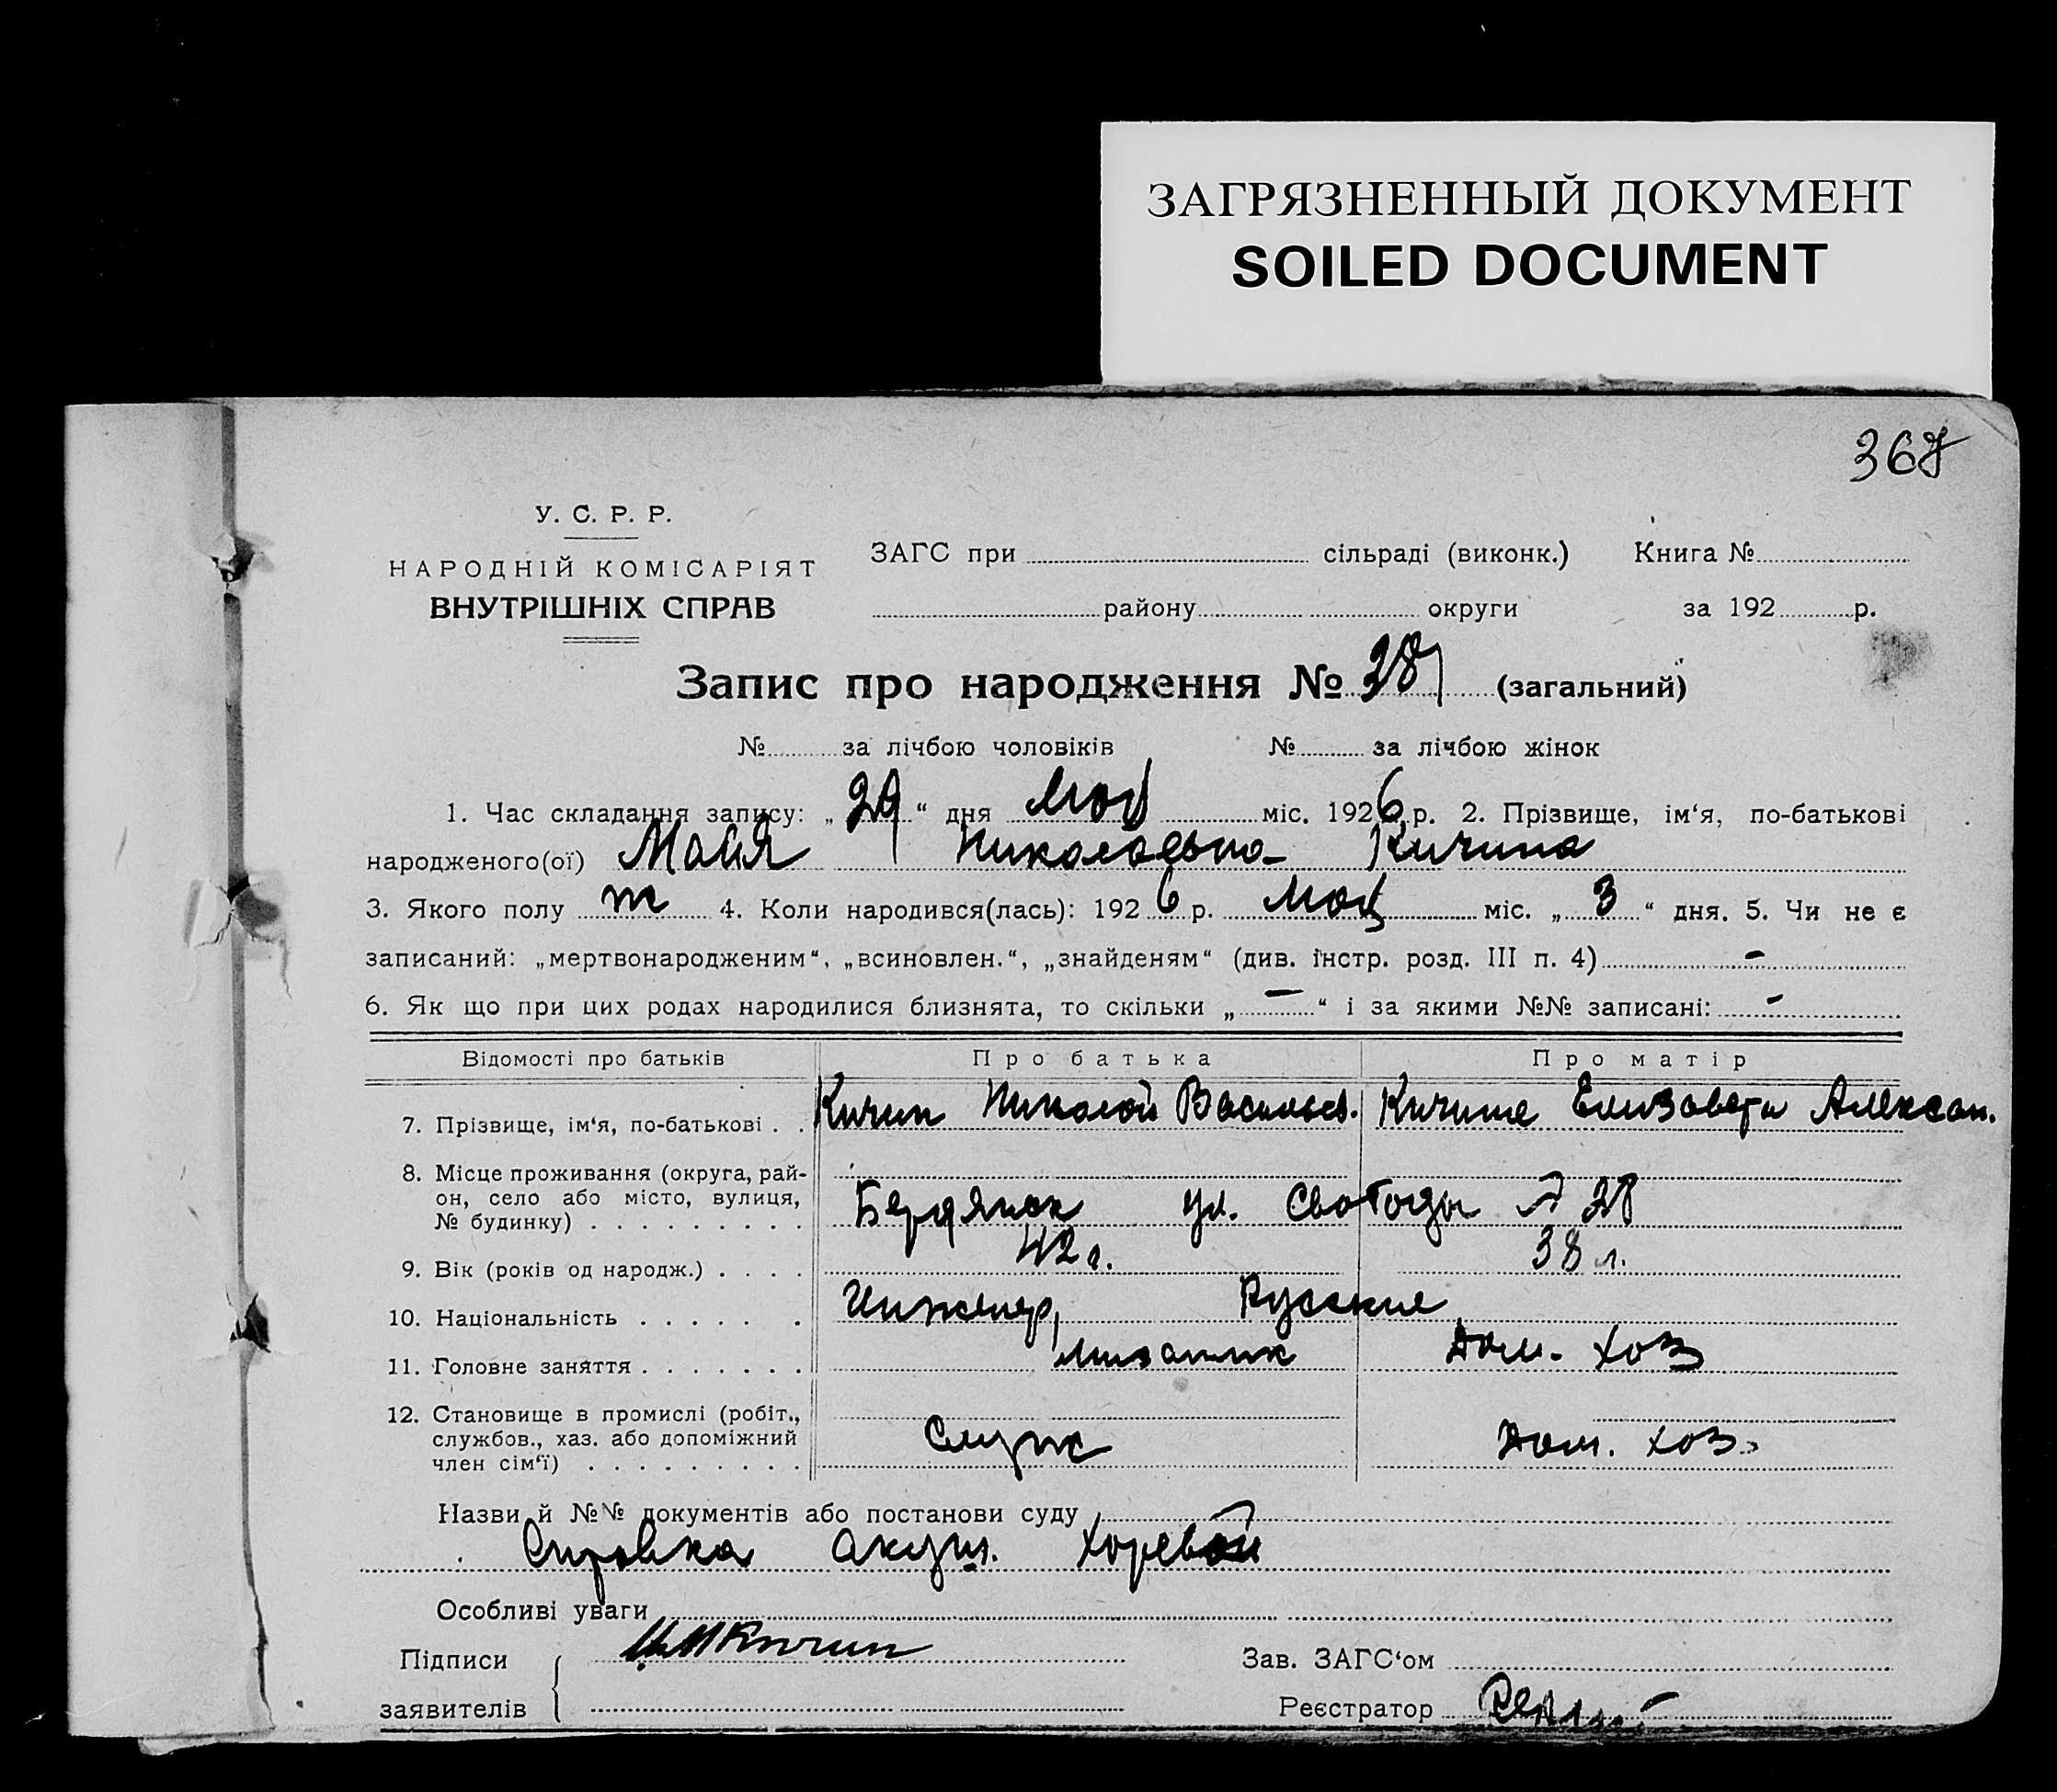 ЗАГРЯЗНЕННЫЙ ДОКУМЕНТ
SOILED DOCUMENT
367
У. С. Р. Р.
НАРОДНІЙ КОМІСАРІЯТ
ВНУТРІШНІХ СПРАВ
ЗАГС при сільраді (виконк.) Книга №
району округи за 192 р.
Запис про народження № 287 (загальний)
№ за лічбою чоловіків № за лічбою жінок
1. Час складання запису: „29“ дня мая міс. 1926 р. 2. Прізвище, ім‘я, по-батькові
народженого(ої) Майя Николаевна Кичина
3. Якого полу ж 4. Коли народився(лась): 1926 р. мая міс. „3“ дня. 5. Чи не є
записаний: „мертвонародженим“, „всиновлен.“, „знайденям“ (див. інстр. розд. III п. 4) -
6. Як що при цих родах народилися близнята, то скільки „—“ і за якими №№ записані: -
Відомості про батьків Про батька Про матір
7. Прізвище, ім‘я, по-батькові . . Кичин Николай Васильев. Кичина Елизавета Алексан.
8. Місце проживання (округа, рай-
он, село або місто, вулиця,
№ будинку) . . . . . . . . . Бердянск ул. Свободы 38
9. Вік (років од народж.) . . . . 42 г. 38 л.
10. Національність . . . . . . Инженер, Русские
11. Головне заняття . . . . . . . механик Дом. хоз
12. Становище в промислі (робіт.,
службов., хаз. або допоміжний
член сім‘ї) . . . . . . . . . Служ Дом. хоз.
Назви й №№ документів або постанови суду
Справка акуш. Хоревой
Особливі уваги
Підписи Кичин Зав. ЗАГС‘ом
заявителів Реєстратор